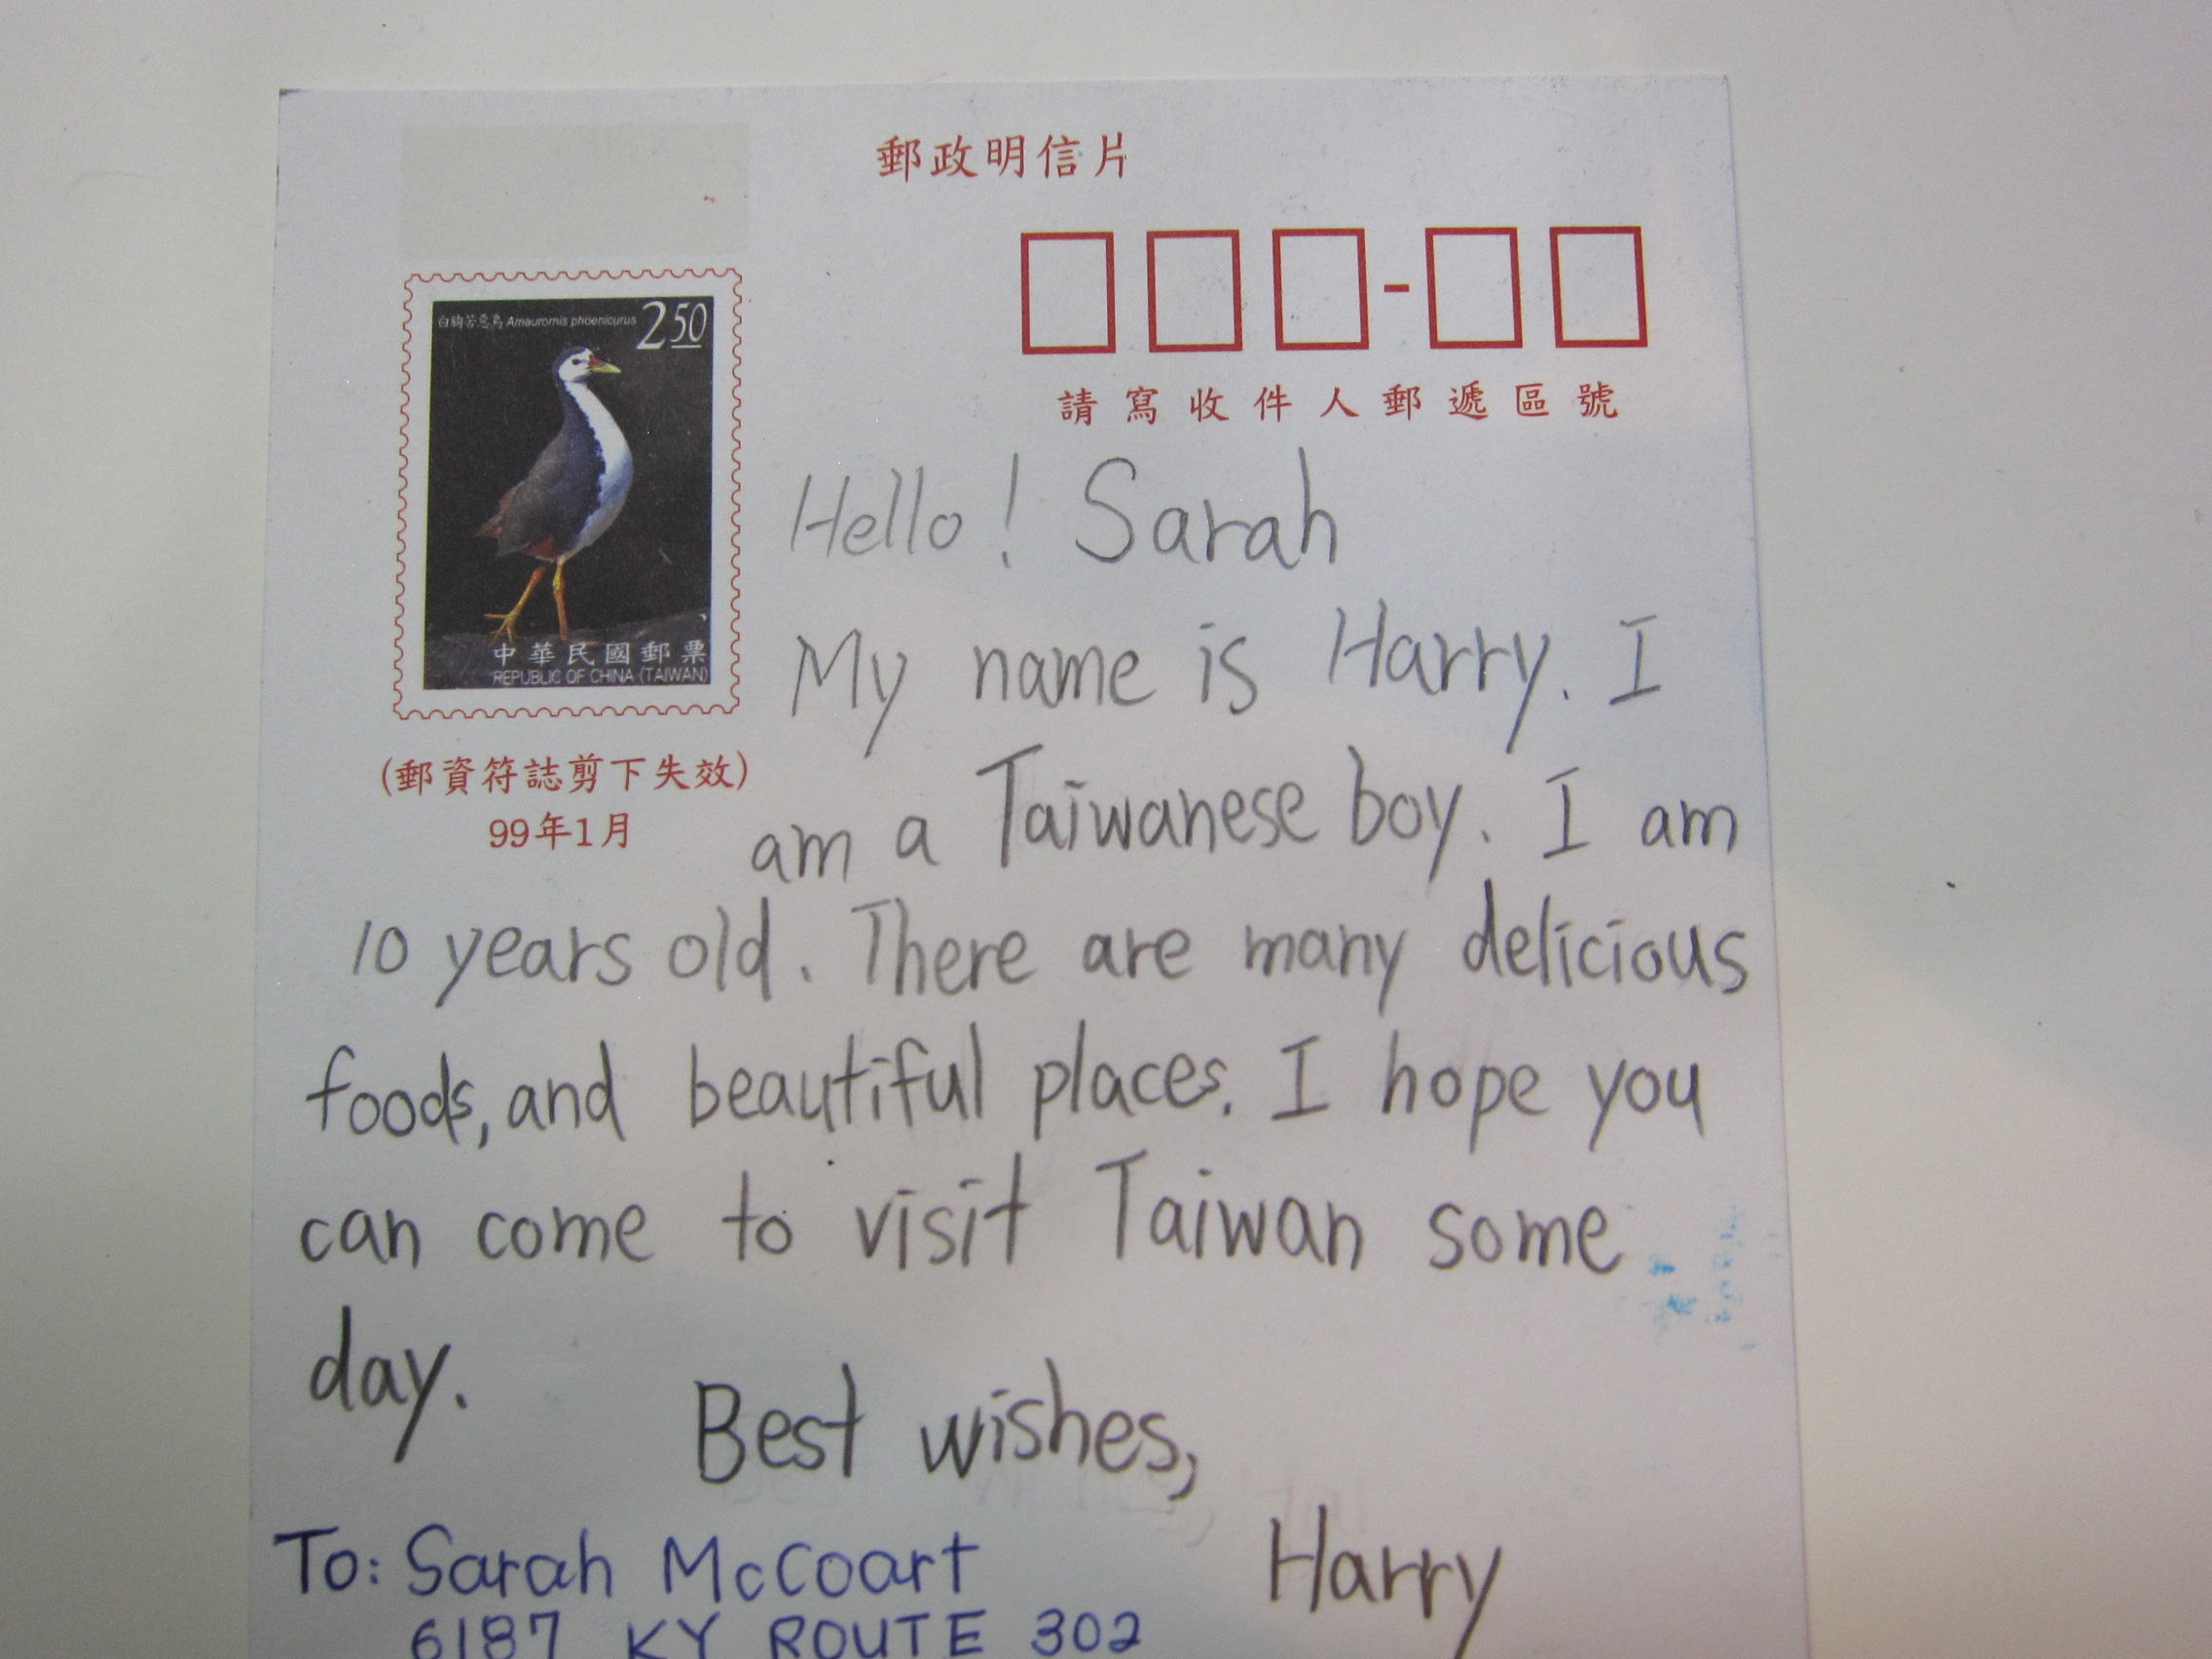 郵政明信片
白胸苦惡鳥 Amaurornis phoenicurus 250
中華民國郵票
REPUBLIC OF CHINA (TAIWAN)
(郵資符誌剪下失效)
99年1月
-
請寫收件人郵遞區號
Hello! Sarah
My name is Harry. I
am a Taiwanese boy. I am
10 years old. There are many delicious
foods, and beautiful places. I hope you
can come to visit Taiwan some
day.
Best wishes,
Harry
To: Sarah McCoart
6187 KY ROUTE 302